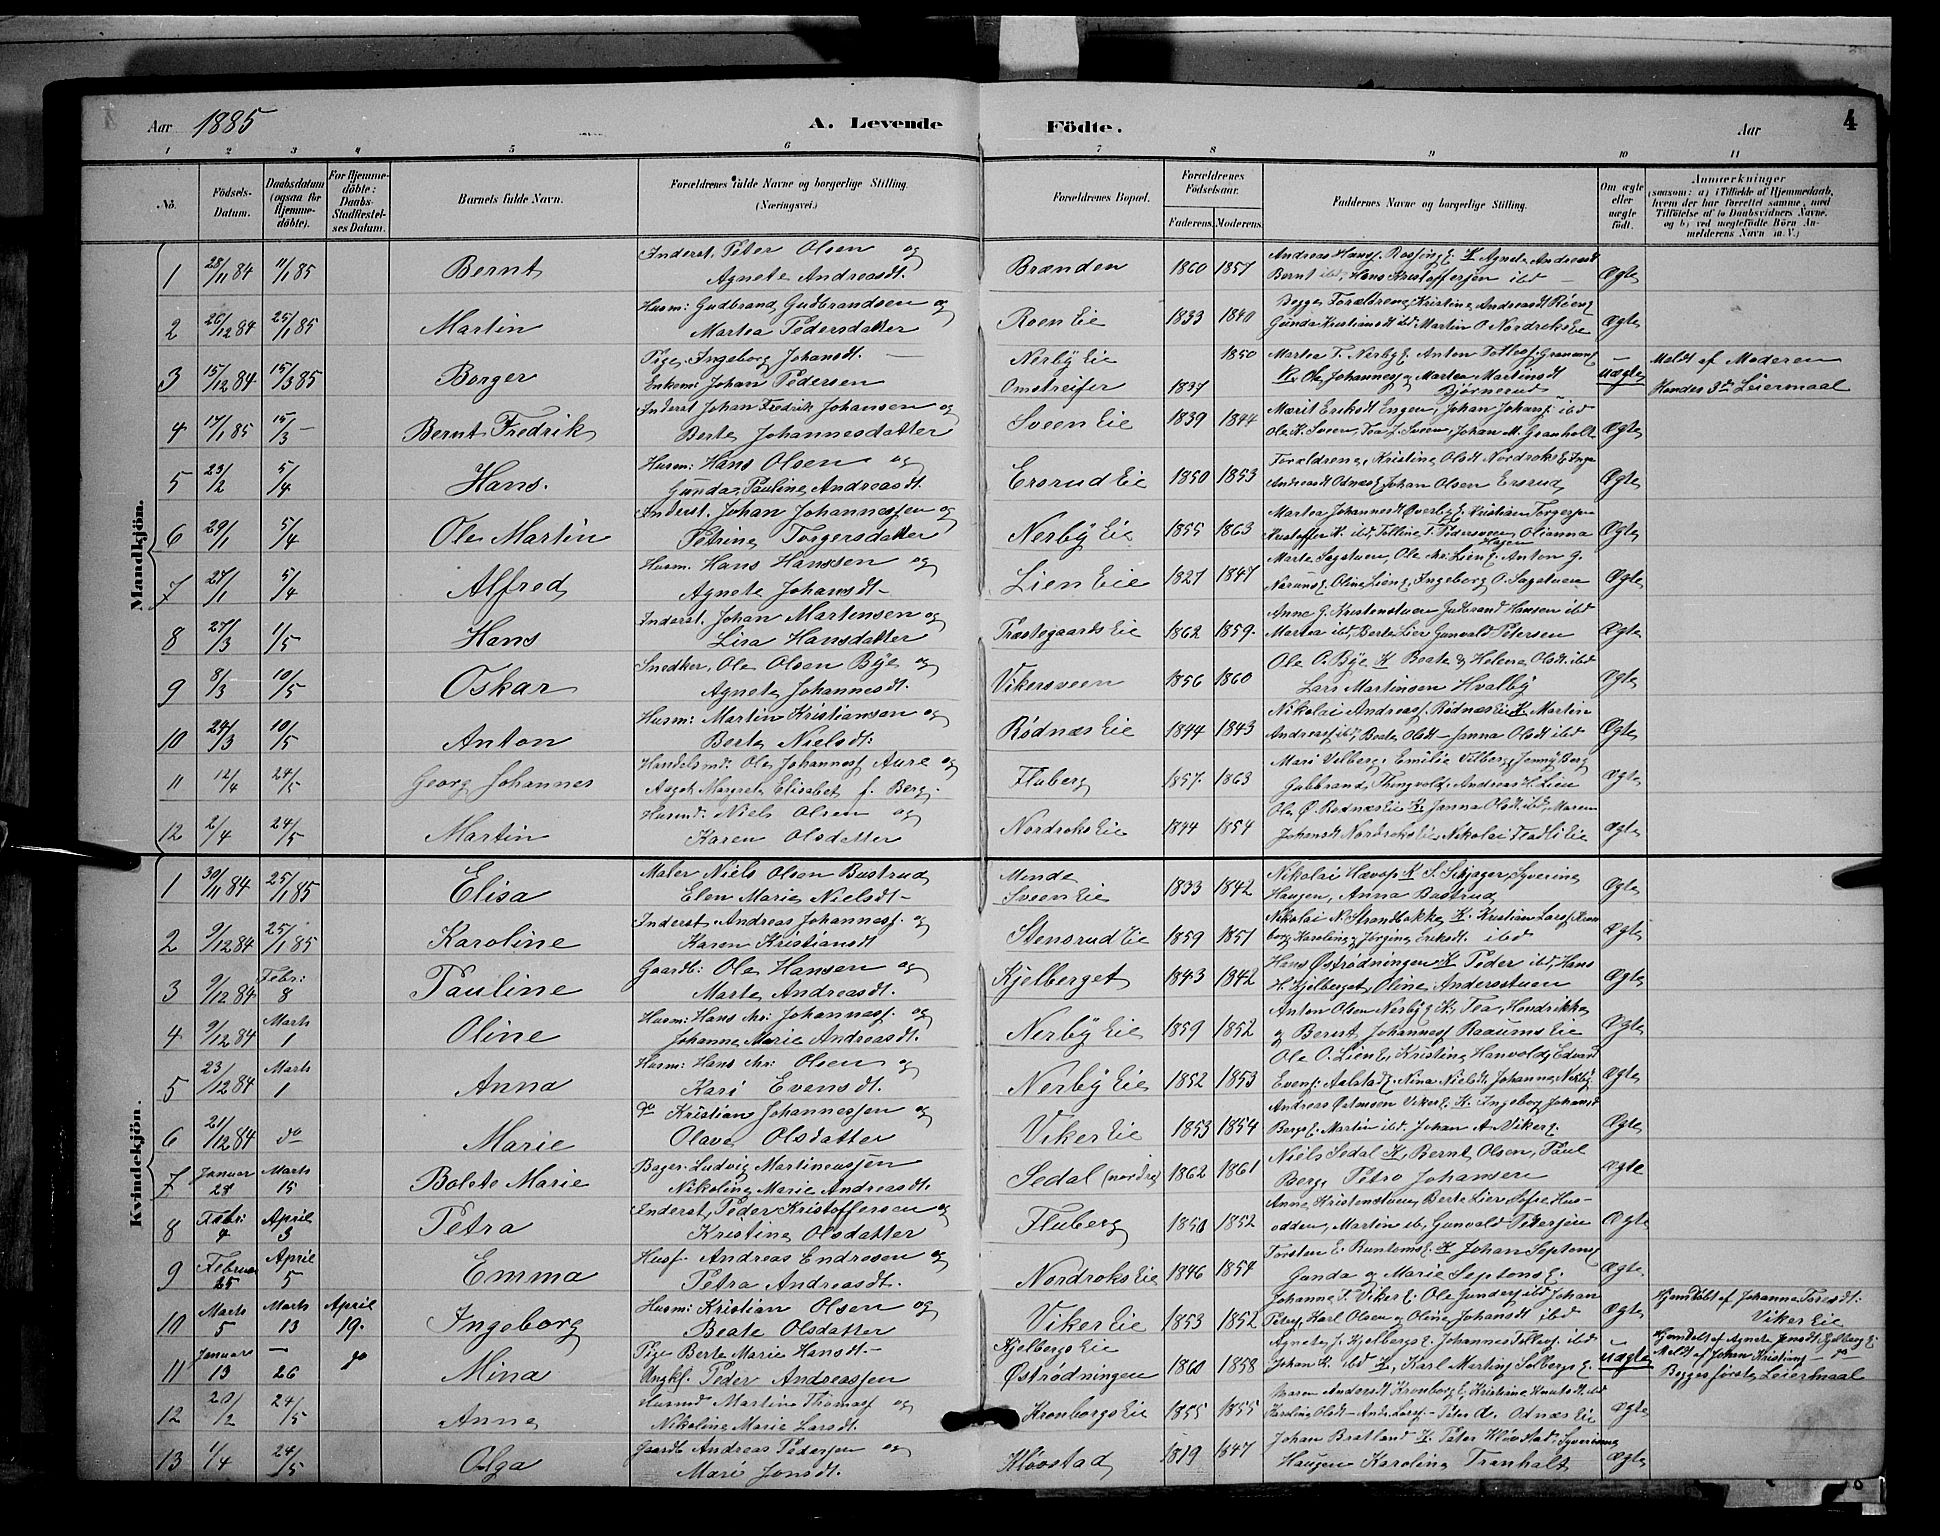 Aar 1885 A. Levende Födte. Aar 4
1 2 3 4 5 6 7 8 9 10 11
Nō. Födsels-Datum. Daabsdatum (ogsaa for Hjemme-döbte). For Hjemme-döbte: Daabs-Stadfæstel-ses Datum. Barnets fulde Navn. Forældrenes fulde Navne og borgerlige Stilling. (Næringsvei.) Forældrenes Bopæl. Forældrenes Födselsaar. Faderens. Moderens. Faddernes Navne og borgerlige Stilling. Om ægte eller uægte født. Anmærkninger
(saasom: a) i Tilfælde af Hjemmedaab, hvem der har forrettet samme, med Tilföielse af to Daabsvidners Navne, og b) ved uægtefödte Börn An-melderens Navn m. V.)
Mandkjön.
Inderst. Peter Olsen og Andreas Hans. K Agnete Andreasd
1 28/11 84 11/1 85 Bernt Agnete Andreasdt. Brænden 1860 1857 Bernt ibd, Hans Kristoffersen ibd Ægte
Husm: Gudbrand Gudbrandsen og Begge Forældrene, Kristine Andreasdt
2 26/12 84 25/1 85 Martin Martea Pedersdatter Roen Eie 1833 1840 Gunda Kristiansdt ibd Martin O. Nordroks Eie Ægte
Pige, Ingeborg Johansdt. Nerby Eie 1850 Martea T. Nerby E. Anton Meldt af Moderen
3 15/12 84 15/3 85 Borger Enkem: Johan Pedersen Omstreifer 1837 Ole Johannes og Martea Martinsdt Bjørnerud uægte Hendes 3die Leiermaal
Inderst Johan Fredrik Johansen og Marit Eriksdt Engen, Johan Johans ibd
4 17/1 85 15/3 Bernt Fredrik Berte Johannesdatter Sveen Eie 1839 1844 Ole K. Sveen, Tea J. Sveen, Johan M. Granholt Ægte
Husm: Hans Olsen og Forældrene, Kristine Olsdt Nordroks E. Inga
5 23/2 5/4 Hans. Gunda Pauline Andreasdt. Ersrud Eie 1850 1853 Andreasdt Odnæs E. Johan Olsen Ersrud Ægte
Inderst. Johan Johannessen og Martea Johannesdt Overby E. Kristian Torgersen
6 29/1 5/4 Ole Martin Petrine Torgersdatter Nerby Eie 1855 1863 Kristoffer K. ibd, Olianna Hagen Ægte
Husm: Hans Hanssen og Marte Sagstuen, Ole Lien E. Anton G.
7 27/1 5/4 Alfred Agnete Johansdt. Lien Eie 1827 1847 Oline Lien E, Ingeborg O. Sagstuen Ægte
Inderst. Johan Martensen og Anne G. Kristenstuen Gudbrand Hansen ibd
8 27/3 1/5 Hans Lisa Hansdatter Præstegaards Eie 1862 1859. Martea ibd, Berte Lier Gunvald Petersen Ægte
Snedker, Ole Olsen Bye og Ole O. Bye K Beate & Helene Olsdt. ibd
9 8/3 10/5 Oskar Agnete Johannesdt. Vikersveen 1856 1860 Lars Martinsen Hvalby Ægte
Husm: Martin Kristiansen og Nikolai Andreas. Rødnæs Eie K. Martin
10 24/3 10/5 Anton Berte Nielsdt: Rødnæs Eie 1844 1843 Andreas ibd, Beate Olsdt - Janna Olsdt ibd Ægte
Handelsmd: Ole Johannes Aure og Mari Velberg, Emilie Velberg, Jenny Berg
11 12/4 24/5 Georg Johannes Aagot Margrete Elisabet f. Berg. Fluberg 1857. 1863 Gubbrand Thingvold, Andreas H. Lien Ægte
Husmd: Niels Olsen og Ole Ø. Rødnæs Eie K. Janna Olsdt ibd, Maren
12 2/4 24/5 Martin Karen Olsdatter Nordroks Eie 1844 1854 Johansdt Nordroks Eie, Nikolai Eie Ægte
Kvindekjön.
Maler Niels Olsen Bustrud Minde Nikolai K S. Schjager, Syverine
1 30/11 84 25/1 85 Elisa Elen Marie Nielsdt - Sveen Eie 1833 1842 Haugen, Anna Bustrud Ægte
Inderst. Andreas Johannes. og Nikolai N. Strandbakke K. Kristian Lars.
2 9/12 84 25/1 85 Karoline Karen Kristiansdt Stensrud Eie 1859 1857 Karoline og Jørgine Eriksdt. ibd Ægte
Gaardb: Ole Hansen og Hans Østrødningen K Peder ibd, Hans
3 9/12 84 Febr: 8 Pauline Marte Andreasdt. Kjelberget 1843 1842 H. Kjelberget, Oline Andersstuen Ægte
Husm: Hans Chr: Johannes. og Anton Olsen Nerby E. K. Tea, Hendrikke
4 9/12 84 Marts 1 Oline Johanne Marie Andreasdt. Nerby Eie 1859 1852 og Bernt Johannes Raaums Eie Ægte
Husm: Hans Chr: Olsen og Ole O. Lien E. Kristine Hanvold, Edvard
5 23/12 84 Marts 1 Anna Kari Evensdt. Nerby Eie 1852 1853 Evens. Aalstad, Nina Nielsdt Johanne Nerby Ægte
do Kristian Johannessen og Andreas Viker E. K. Ingeborg Johansd
6 21/12 84 do Marie Olava Olsdatter Viker Eie 1853 1854 Bergs E. Martin ibd. Johan A. Viker E. Ægte
Bager. Ludvig Martineussen Niels Sedal K, Bernt Olsen, Paul
7 Januar 28 Marts 15 Bolete Marie Nikoline Marie Andreasdt. Sedal (nordre) 1862 1861 Berg, Petro Johansen Ægte
Inderst, Peder Kristoffersen og Anne Kristenstuen, Berte Lier, Sofie Hus-
8 Febr: 4 April 3 Petra Kristine Olsdatter Fluberg 1850 1852 odden, Martin ib, Gunvald Petersen Ægte
Husf. Andreas Endresen og Torsten E. Runtoms E. K Johan Septons
9 Februar 25 April 5 Emma Petra Andreasdt. Nordroks Eie 1846 1854 Gunda og Marie Septons E. Ægte
Husm: Kristian Olsen og Johanne T. Viker E. Ole Gunders ibd Johan Hjemdøbt af Johanne Toresdt:
10 Marts 5 Marts 13 April 19. Ingeborg Beate Olsdatter Viker Eie 1853 1852 Peters, Karl Olsen og Oline Johansdt ibd Ægte Viker Eie
Pige Berte Marie Hansdt. - Kjelbergs Eie Agnete J. Kjelbergs E. Johannes Tollefs. ibd Hjemdøbt af Agnete Jensdt, Kjelberg E.
11 Januar 13 — 26 do Mina Ungkf. Peder Andreassen Østrødningen 1860 1858 Johan K. ibd K, Karl Martins Solbergs E. uægte Meldt af Johan Kristians - do - Begges første Leiermaal
Husmd Martin Thomas og Maren Andersdt Kronborg E, Kristine ibd
12 20/2 24/5 Anne Nikoline Marie Larsdt. Kronborgs Eie 1855 1855 Karoline Olsdt - Lars - Peter A. Odnæs Eie Ægte
Gaardb Andreas Pedersen og Johan Bratland K. Peter Kløvstad, Syverine
13 1/4 24/5 Olga Mari Jonsdt. Kløvstad 1819 1847 Haugen Karoline Tranhalt Ægte